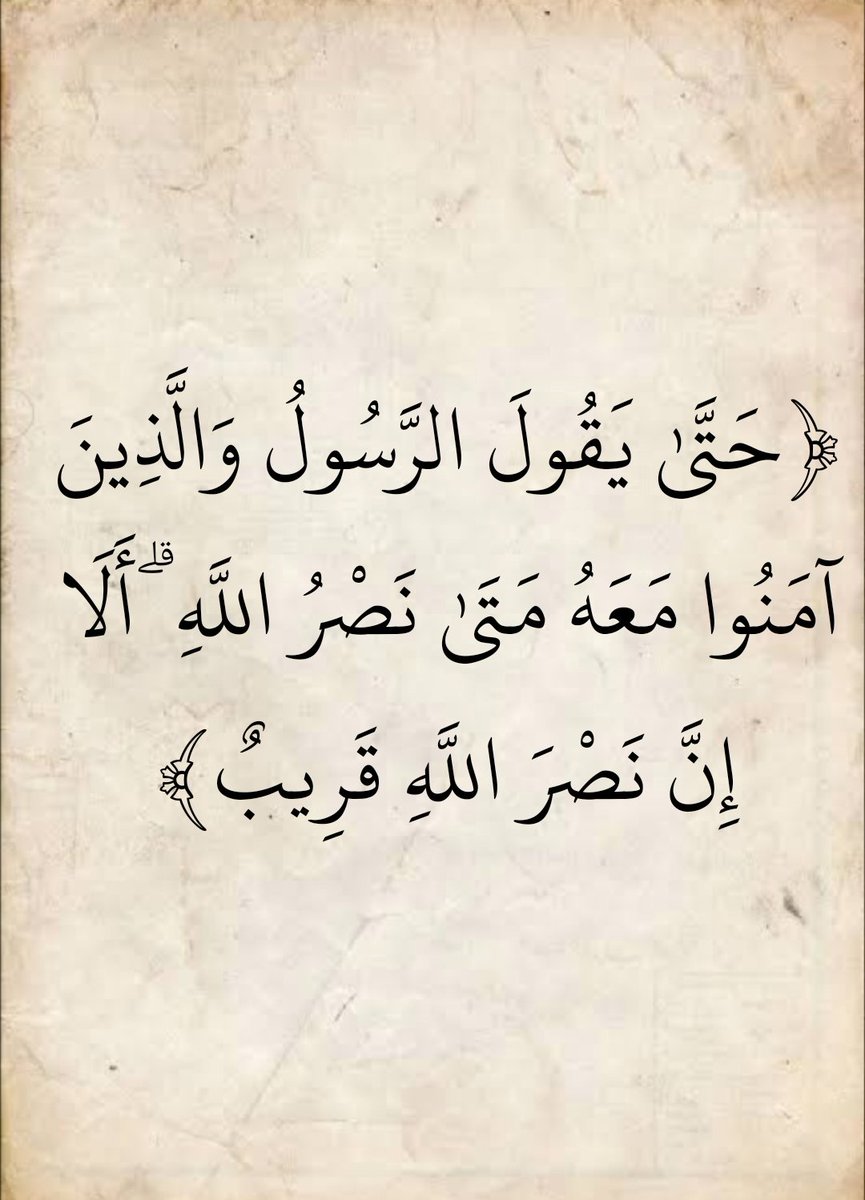 ﴿حَتَّىٰ يَقُولَ الرَّسُولُ وَالَّذِينَ
آمَنُوا مَعَهُ مَتَىٰ نَصْرُ اللَّهِ ۗ أَلَا
إِنَّ نَصْرَ اللَّهِ قَرِيبٌ﴾